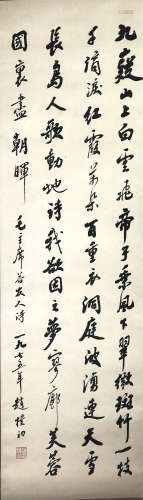 九嶷山上白雲飛帝子乘風下翠微斑竹一枝
千滴淚紅霞萬朵百重衣洞庭波湧連天雪
長島人歌動地詩我欲因之夢寥廓芙蓉
國裏盡朝暉 毛主席答友人詩 一九七五年 趙樸初